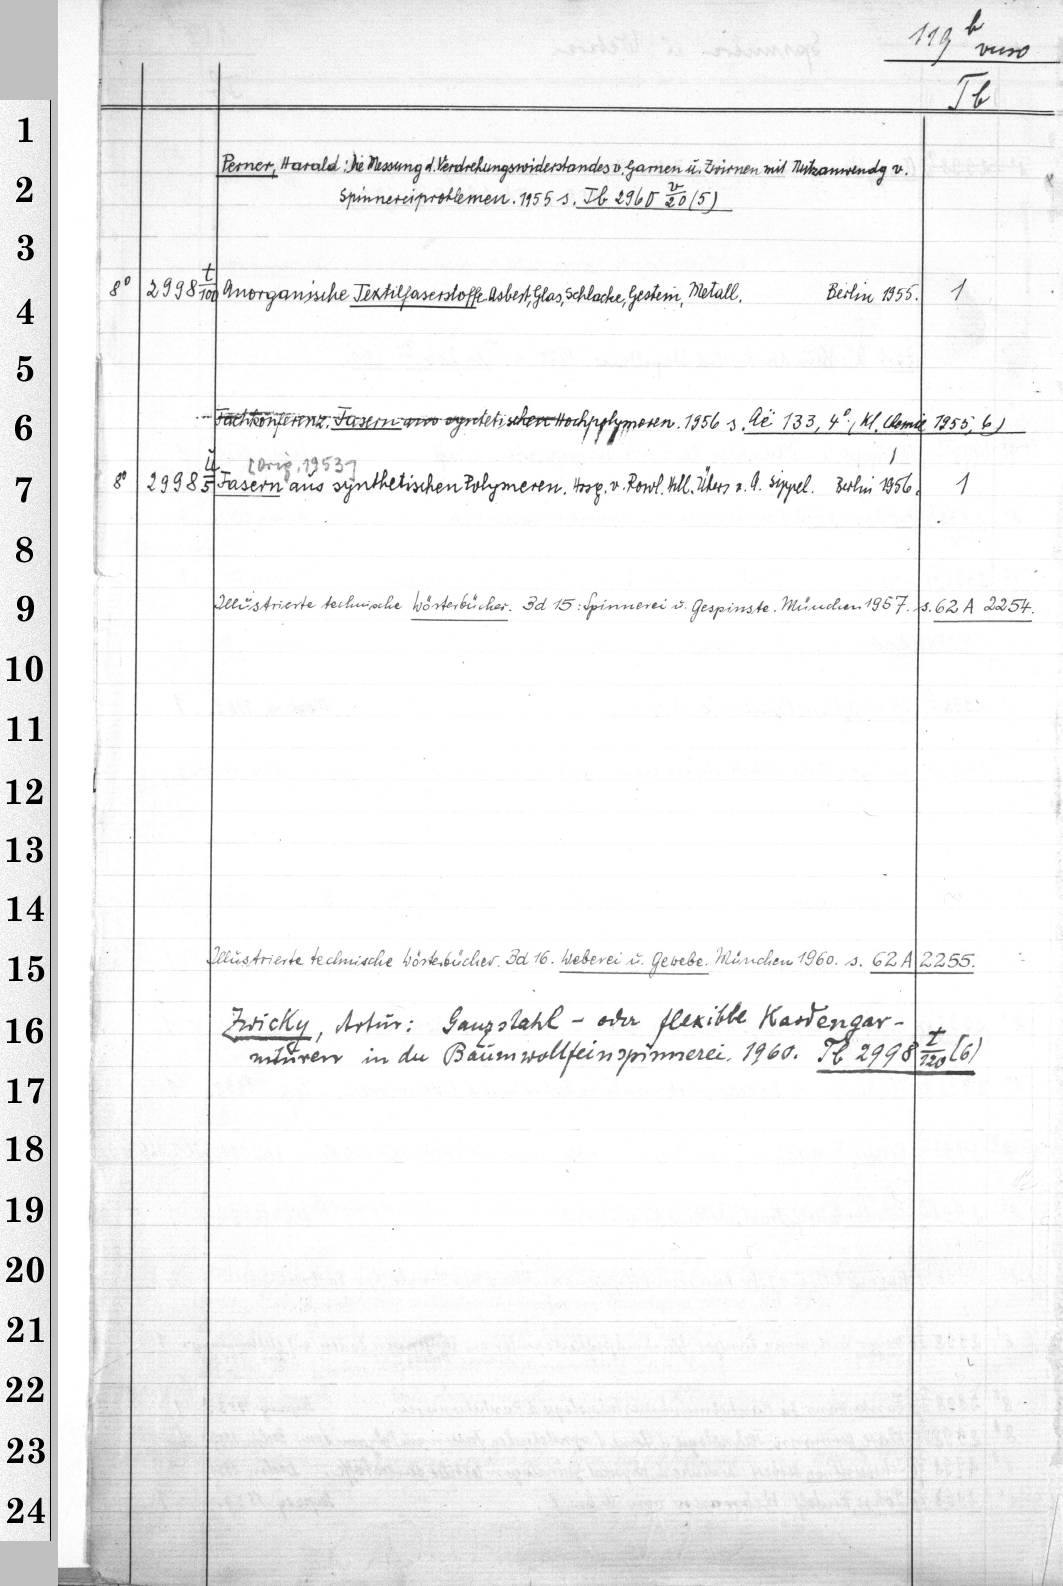 119 b
verso
Tb
1
2
3
4
5
6
7
8
9
10
11
12
13
14
15
16
17
18
19
20
21
22
23
24
Perner, Harald: Die Messung d. Verdrehungswiderstandes v. Garnen u. Zwirnen mit Nutzanwendg v.
Spinnereiproblemen. 1955 s. Tb 2960 v/20 (5)
8° 2998 t/100 Anorganische Textilfaserstoffe Asbest, Glas, Schlacke, Gestein, Metall. Berlin 1955. 1
Fachkonferenz. Fasern aus syntetischen Hochpolymeren. 1956 s. Aë 133, 4° (Kl. Chemie 1955, 6)
[Orig. 1953]
8° 2998 u/5 Fasern aus synthetischen Polymeren. Hrsg. v. Rowl. Hill. Übers v. A. Sippel. Berlin 1956. 1
Illustrierte technische Wörterbücher. Bd 15: Spinnerei u. Gespinste. München 1957. s. 62 A 2254.
Illustrierte technische Wörterbücher. Bd 16. Weberei u. Gewebe. München 1960. s. 62 A 2255.
Zwicky, Artur: Ganzstahl- oder flexible Kardengar-
nituren in der Baumwollfeinspinnerei. 1960. Tb 2998 t/120 (6)